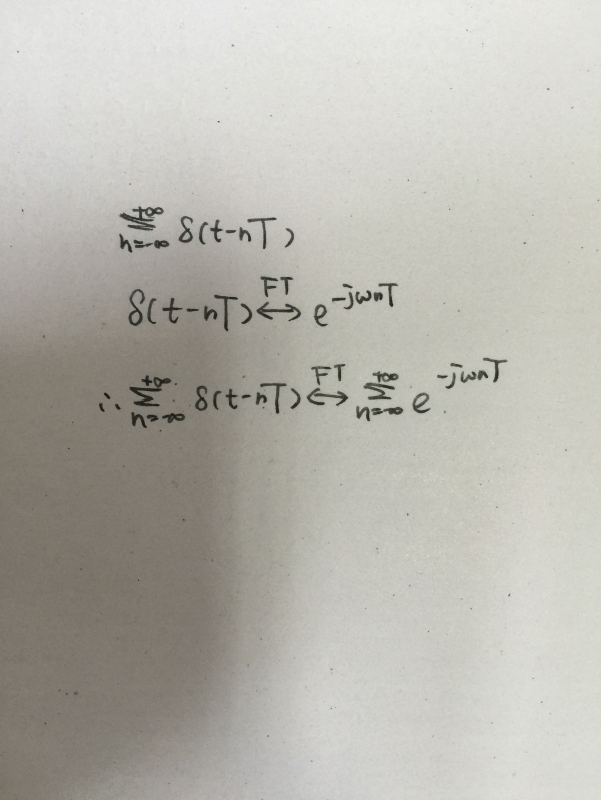 ∑_{n=-∞}^{+∞} δ(t-nT)
δ(t-nT) \overset{FT}{↔} e^{-jωnT}
∴ ∑_{n=-∞}^{+∞} δ(t-nT) \overset{FT}{↔} ∑_{n=-∞}^{+∞} e^{-jωnT}